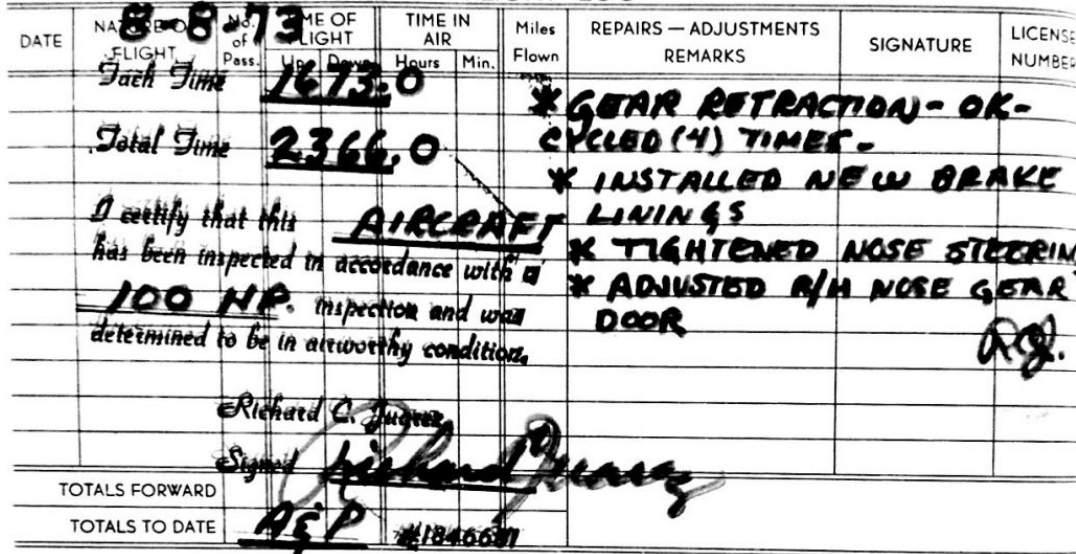 8-8-73
DATE NATURE OF FLIGHT No. of Pass. TIME OF FLIGHT Up Down TIME IN AIR Hours Min. Miles Flown REPAIRS — ADJUSTMENTS REMARKS SIGNATURE LICENSE NUMBER
Tach Time 1673.0
Total Time 2366.0
I certify that this AIRCRAFT
has been inspected in accordance with a
100 HR. inspection and was
determined to be in airworthy condition.
Richard C. Juarez
Signed Richard Juarez
* GEAR RETRACTION - OK -
CYCLED (4) TIMES -
* INSTALLED NEW BRAKE
LININGS
* TIGHTENED NOSE STEERIN
* ADJUSTED R/H NOSE GEAR
DOOR
RJ.
TOTALS FORWARD
TOTALS TO DATE
A&P